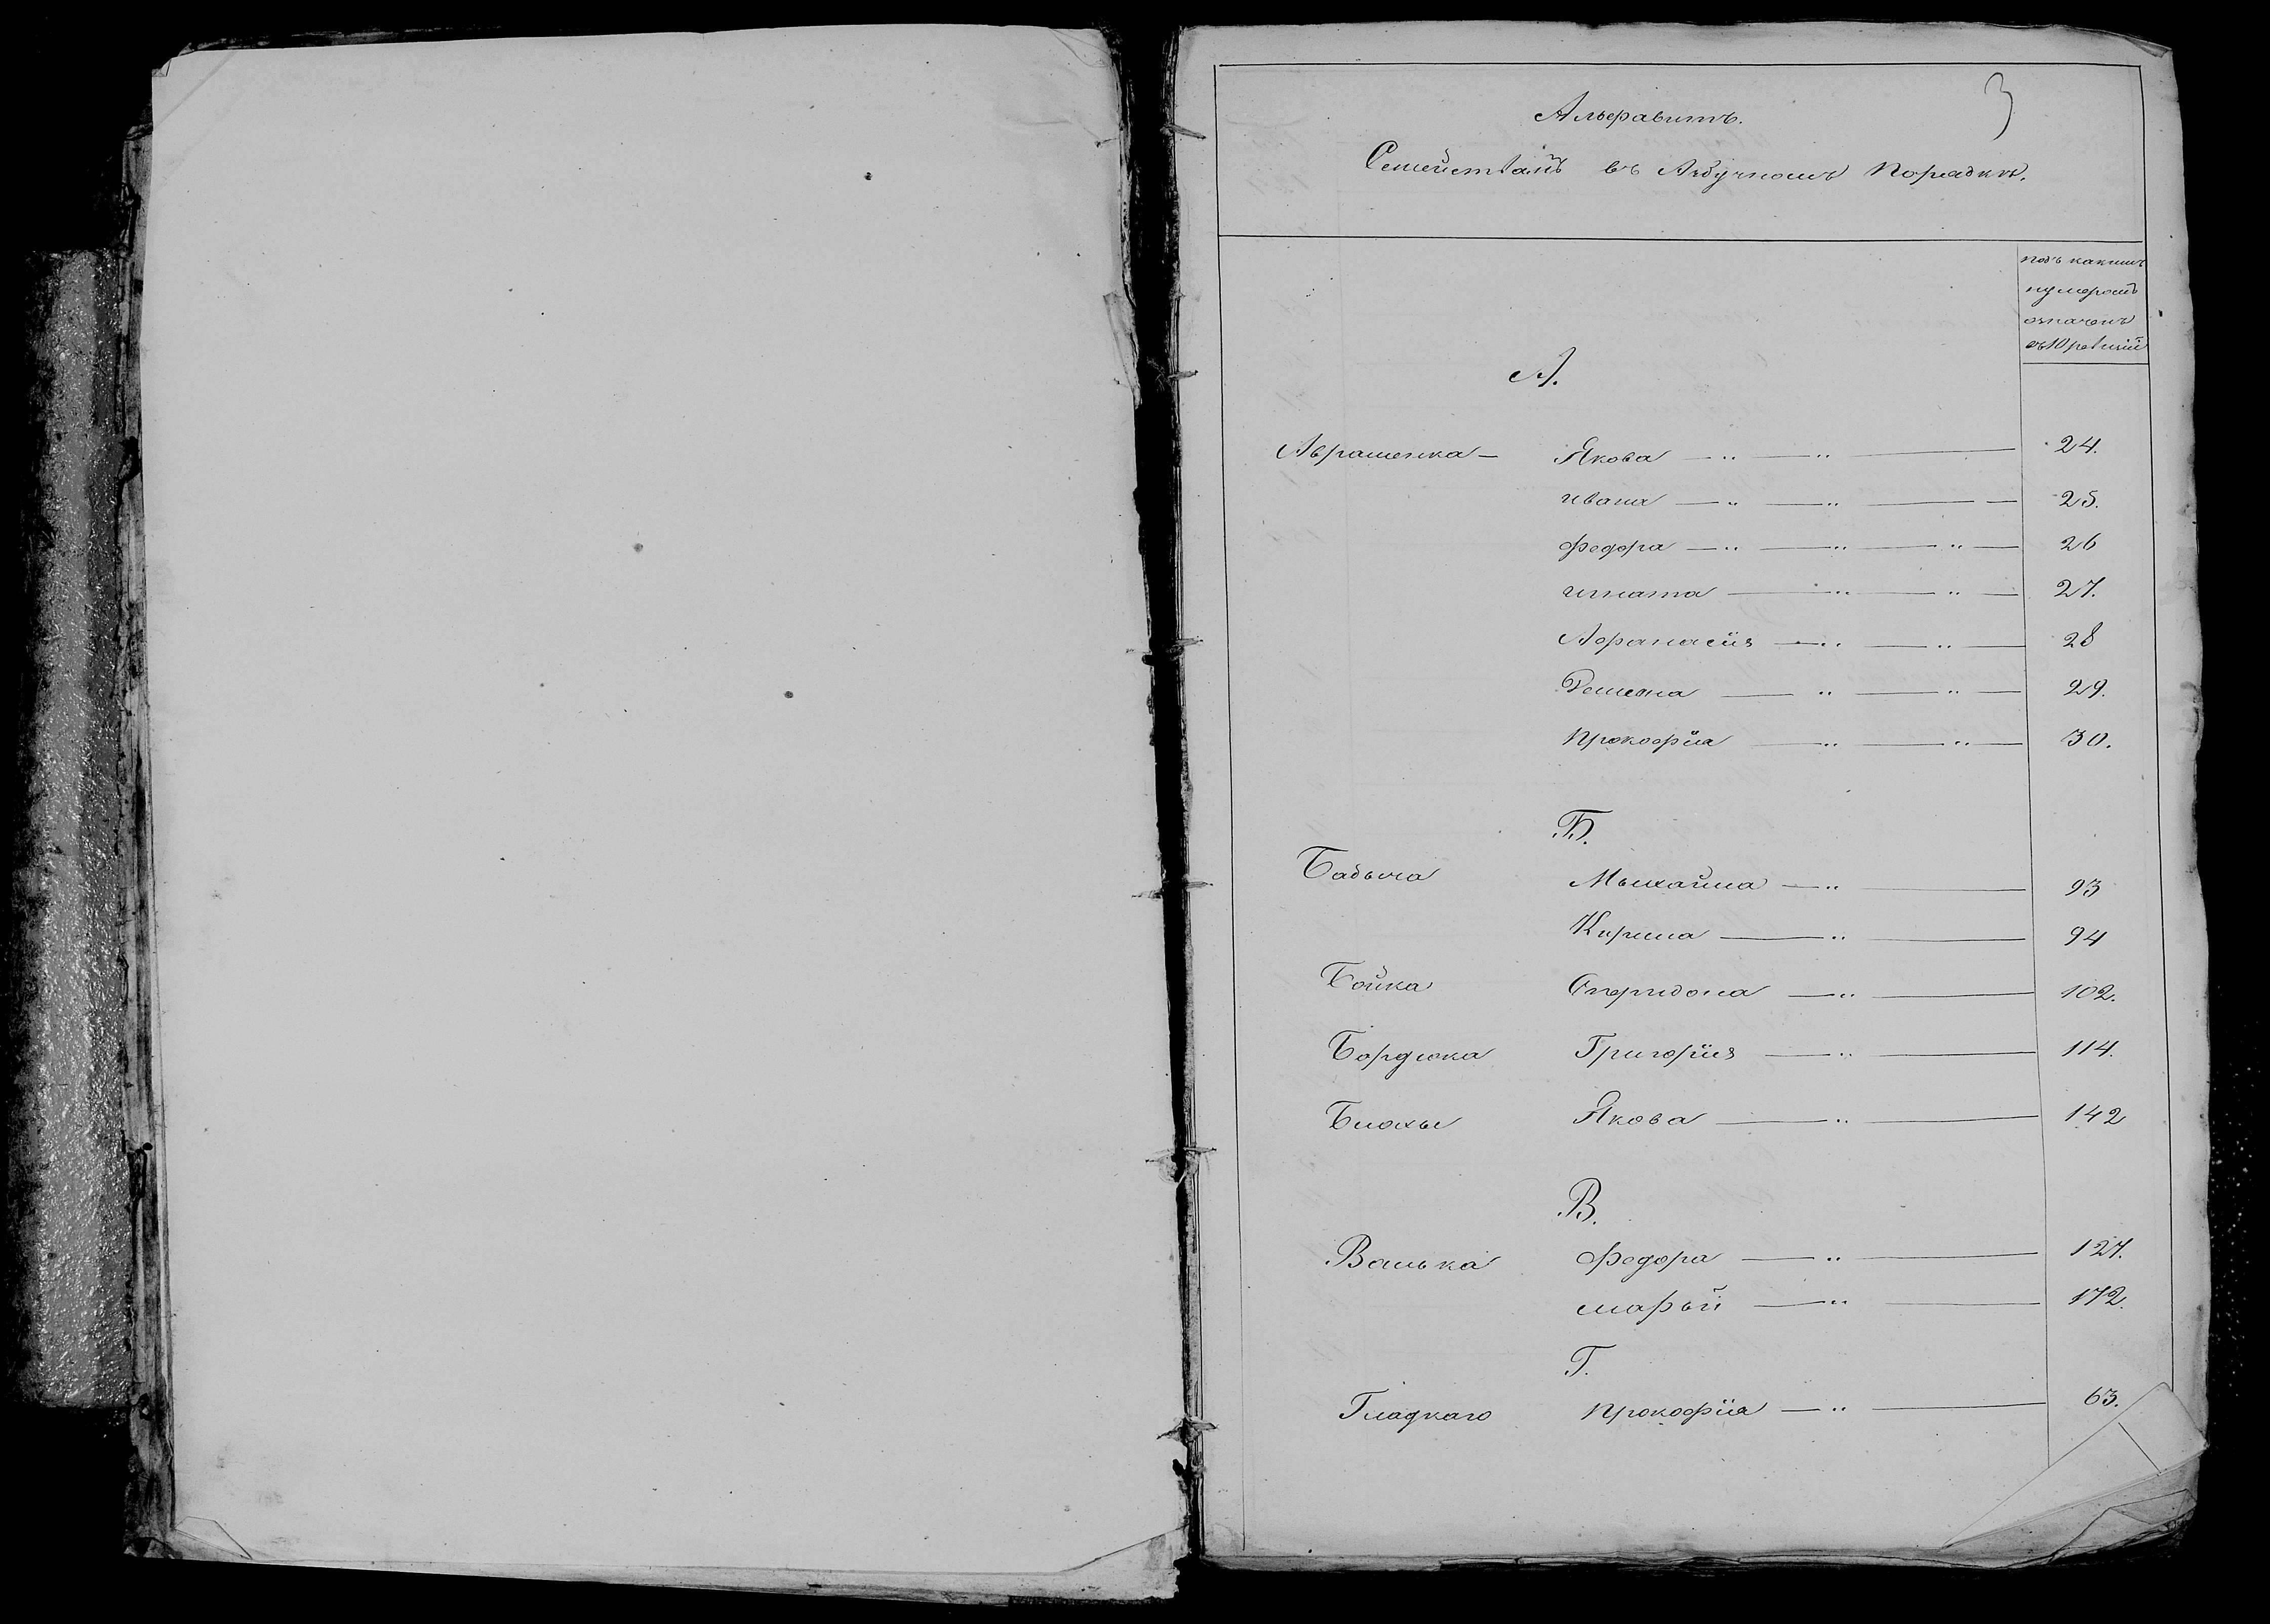 3
Альфавитъ.
Семействамъ въ Азбучномъ Порядкѣ.
подъ какимъ
нумеромъ
означенъ
въ 10 ревизіи
А.
Аврашенка — Якова — „ — „ — 24.
ивана — „ — „ — 25.
Федора — „ — „ — „ — 26
игната — „ — „ — 27.
Афанасія — „ — „ — 28
Семена — „ — „ — 29.
Прокофія — „ — „ — 30.
Б.
Бабыча Мыхайла — „ — 93
Кирила — „ — 94
Бойка Сперидона — „ — 102.
Бордюка Григорія — „ — 114.
Блохы Якова — „ — 142
В.
Ванька Федора — „ — 127.
марьи — „ — 172.
Г.
Гладкаго Прокофія — „ — 63.